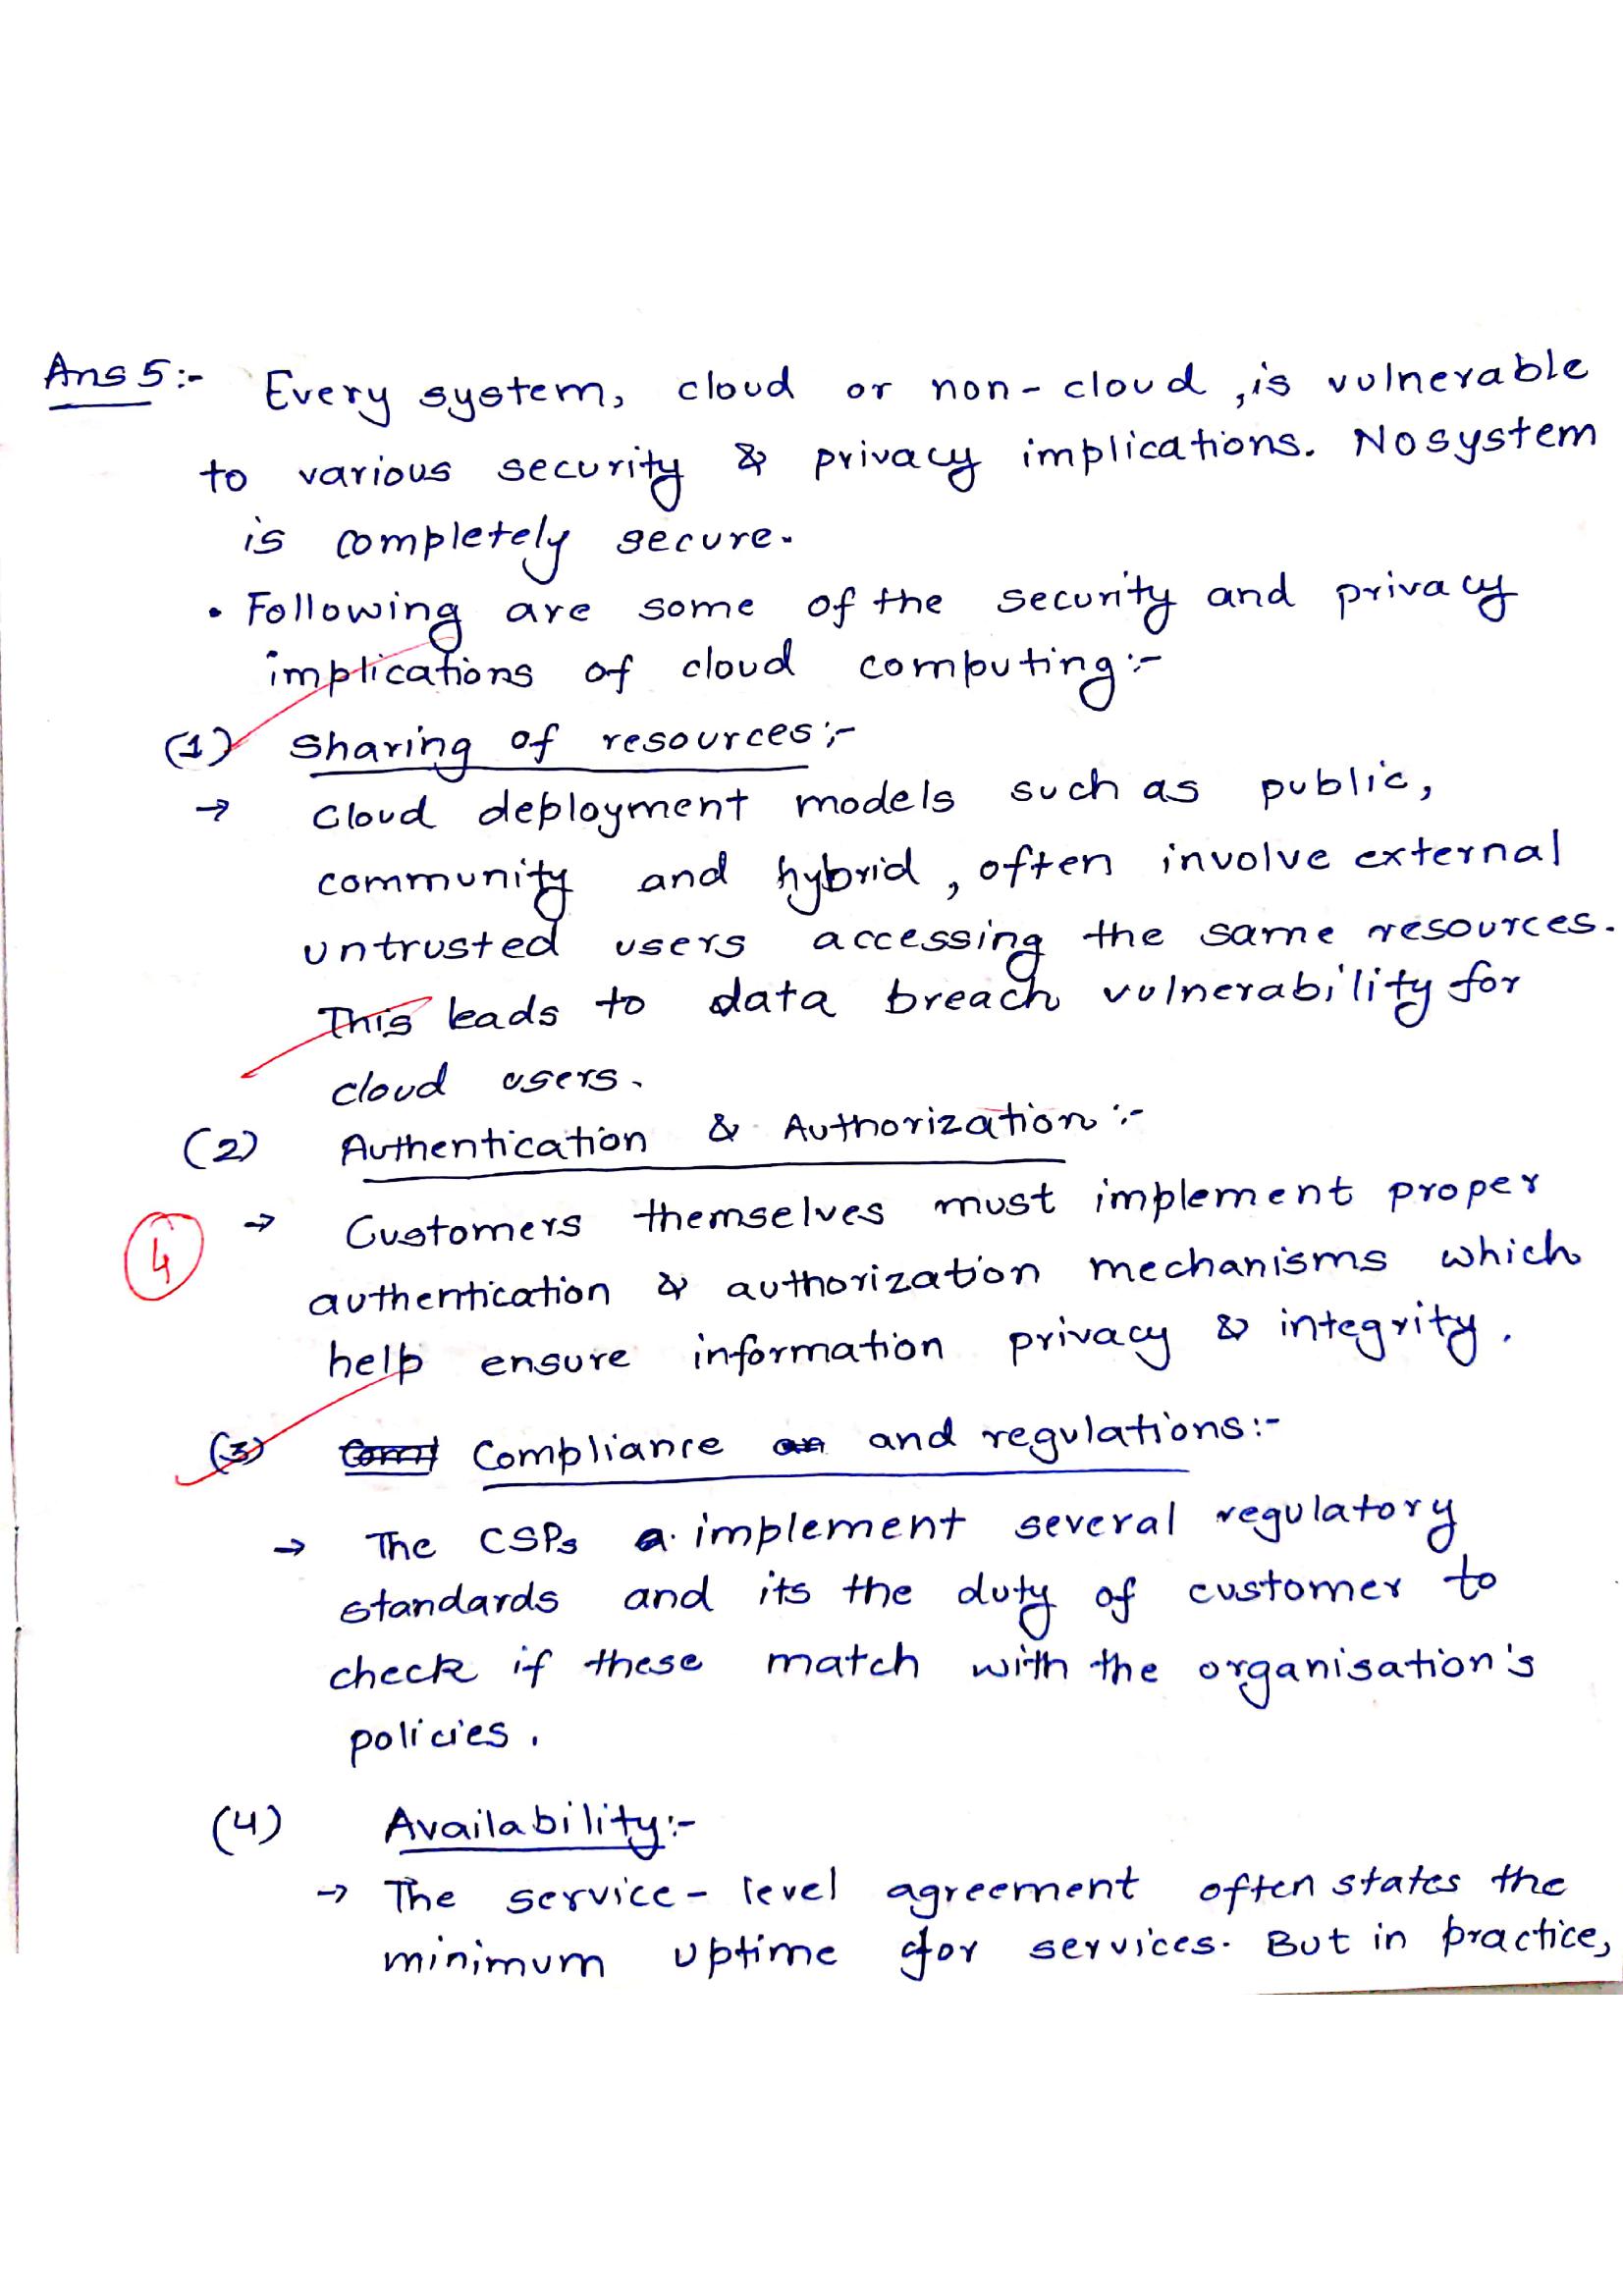 Ans 5:- Every system, cloud or non-cloud, is vulnerable
to various security & privacy implications. No system
is completely secure.
• Following are some of the security and privacy
implications of cloud computing:-
(1) Sharing of resources:-
→ Cloud deployment models such as public,
community and hybrid, often involve external
untrusted users accessing the same resources.
This leads to data breach vulnerability for
cloud users.
(2) Authentication & Authorization:-
→ Customers themselves must implement proper
4
authentication & authorization mechanisms which
help ensure information privacy & integrity.
(3) Compliance and regulations:-
→ The CSPs implement several regulatory
standards and its the duty of customer to
check if these match with the organisation's
policies.
(4) Availability:-
→ The service-level agreement often states the
minimum uptime for services. But in practice,